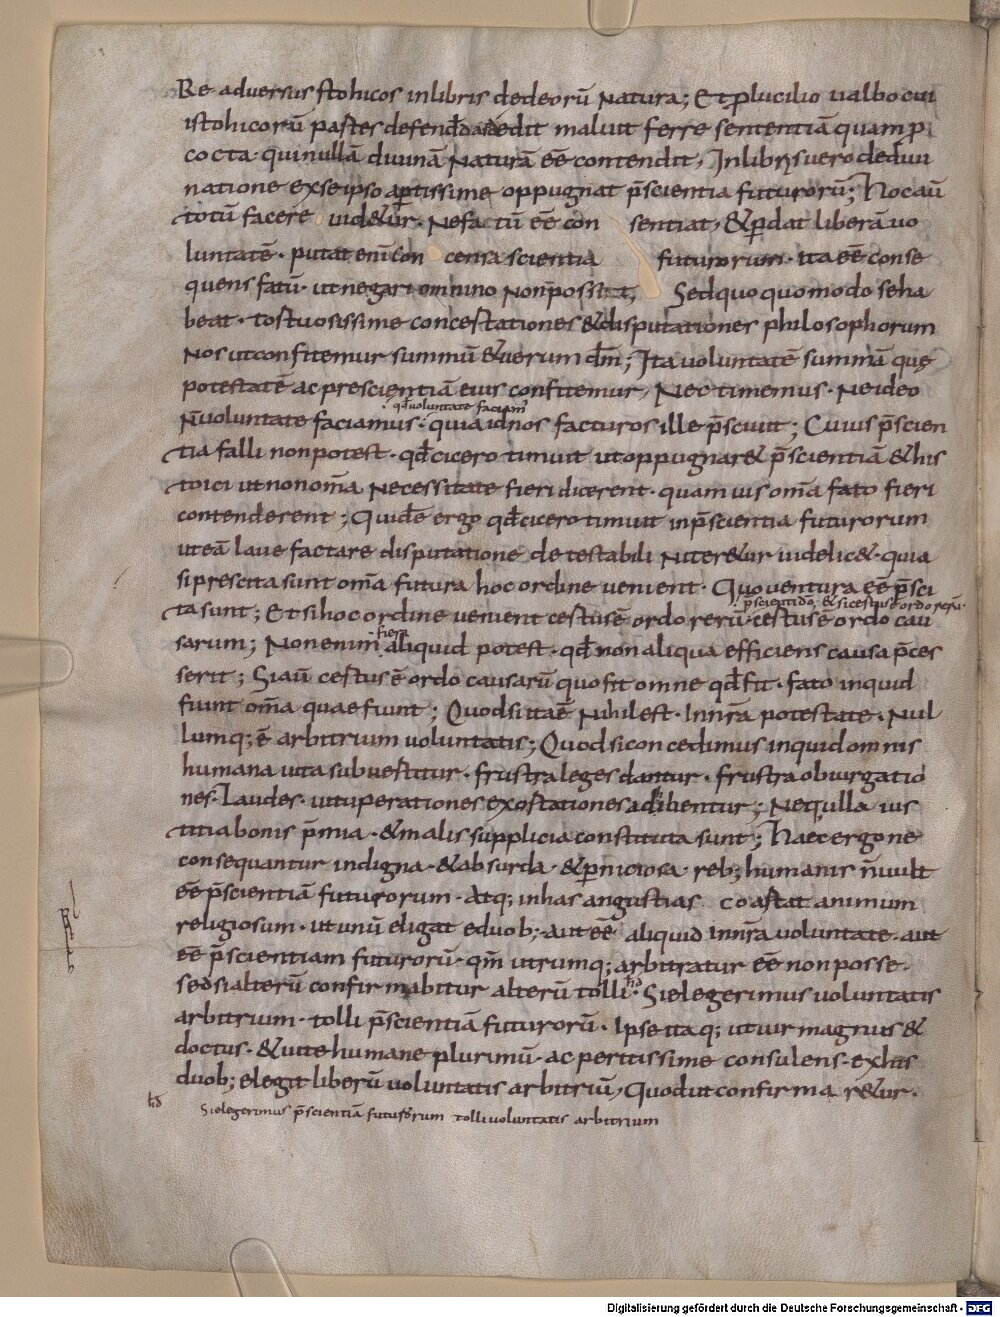 Re adversus stohicos inlibris dedeorū natura; Et p lucilio ualbo cui
istohicorū partes defenddas dedit maluit ferre sententiā quam p
co cta qui nullā diuinā naturā eē contendit, Inlibris uero dediui
natione exseipso aptissime oppugnat p̄scientia futurorū; Hoc aū
totū facere uidetur. Nefa tū eē con sentiat, & pdat liberā uo
luntatē. putat enī con censa scientia futurorum. ita eē conse
quens fatū. ut negari omnino non possit, Sed quo quomodo se ha
beat. tortuosissime concertationes & disputationes philosophorum
Nos ut confitemur summū & uerum dm̄; Ita uoluntatē summā que
potestatē ac prescientiā eius confitemur, Nec timemus. Ne ideo
qd uoluntate facim
n̄ uoluntate faciamus. quia id nos facturos ille p̄sciuit; Cuius p̄scien
tia falli non potest. qd cicero timuit ut oppugnaret p̄scientiā & his
toici ut non om̄a necessitate fieri dicerent. quam uis om̄a fato fieri
contenderent; Quid ē ergo qd cicero timuit in p̄scientia futurorum
ut eā laue factare disputatione detestabili niteretur uidelic&. quia
si prescita sunt om̄a futura hoc ordine uenient. Quo uentura eē p̄sci
p̄scienti dō, & si certus ē ordo rerū
ta sunt; Et si hoc ordine uenient certus ē ordo rerū. certus ē ordo cau
fieri
sarum; Non enim aliquid potest. qd non aliqua efficiens causa p̄ces
serit; Si aū certus ē ordo causarū quo fit omne qd fit. fato inquid
fiunt om̄a quae fiunt; Quod si ita ē nihil est. In nr̄a potestate. Nul
lumq; ē arbitrium uoluntatis; Quod si concedimus inquid omnis
humana uita subuertitur. frustra leges dantur. frustra obiurgatio
nes. Laudes. uituperationes exortationes adhibentur; Neq; ulla ius
titia bonis p̄mia. & malis supplicia constituta sunt; Haec ergo ne
consequantur indigna. & absurda. & pniciosa reb; humanis n̄ uult
eē p̄scientiā futurorum. Atq; in has angustias coartat animum
religiosum. ut unū eligat e duob; aut eē aliquid in nr̄a uoluntate. aut
eē p̄scientiam futurorū. qm̄ utrumq; arbitratur eē non posse.
sed si alterū confirmabitur alterū tolli. hd Si elegerimus uoluntatis
arbitrium. tolli p̄scientiā futurorū. Ipse itaq; ut uir magnus &
doctus. & uite humane plurimū. ac peritissime consulens. ex his
duob; elegit liberū uoluntatis arbitriū, Quod ut confirmaretur.
hd Si elegerimus p̄scientiā futurorum tolli uoluntatis arbitrium
Digitalisierung gefördert durch die Deutsche Forschungsgemeinschaft - DFG